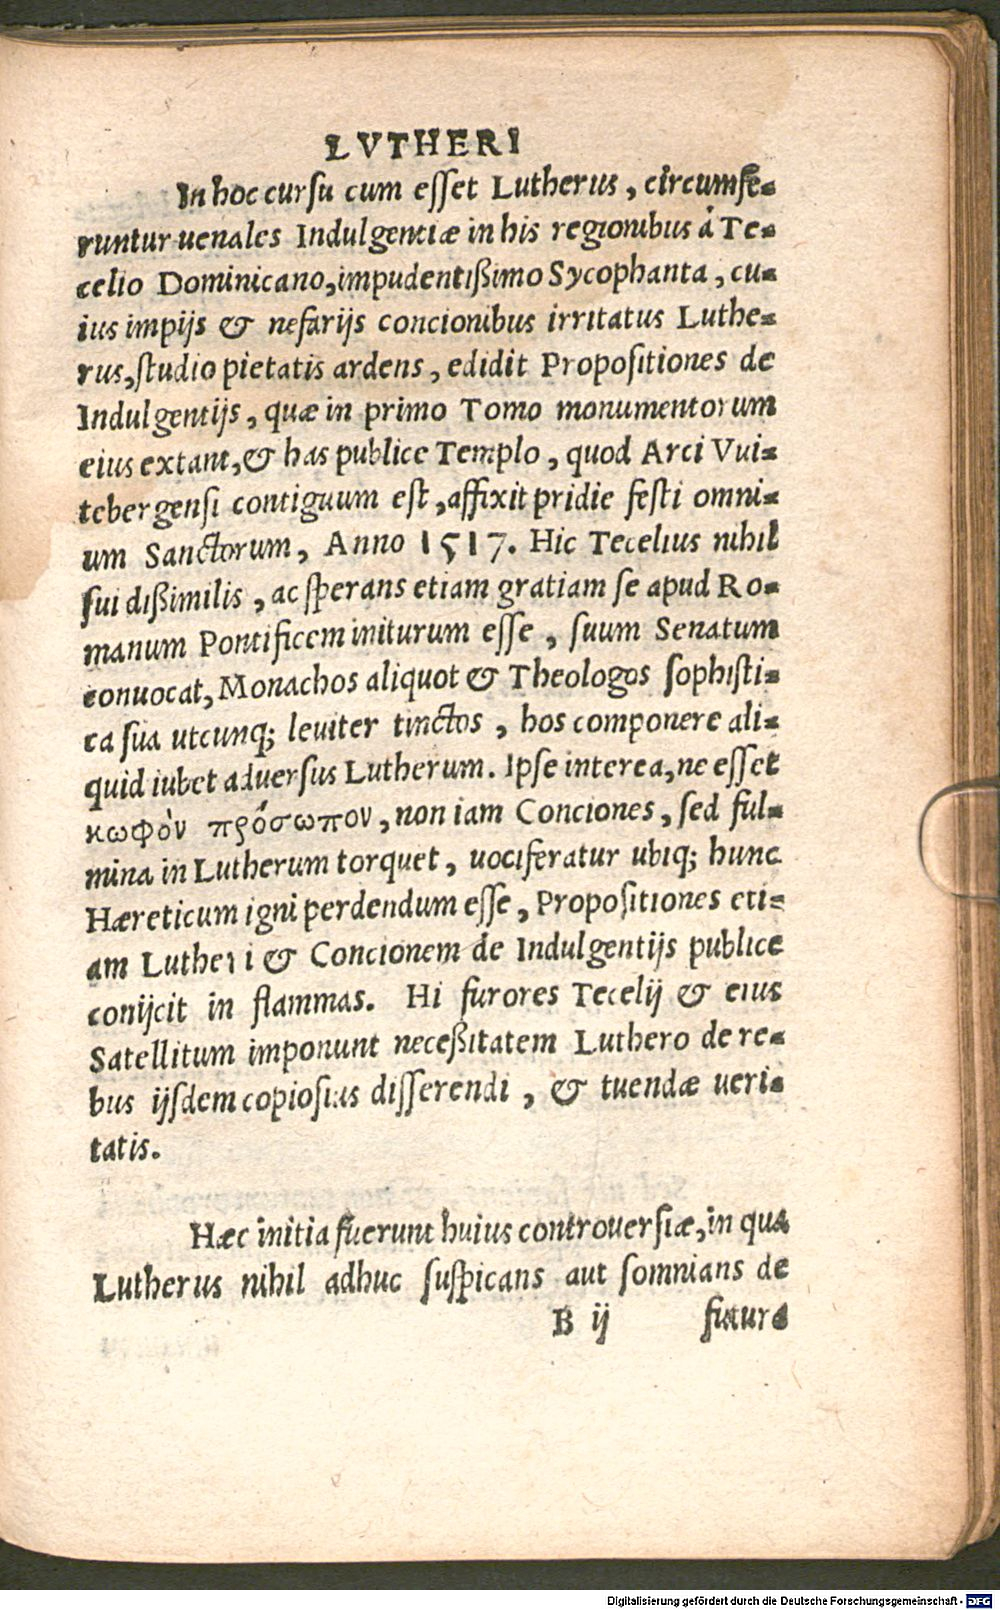 LVTHERI
In hoc cursu cum esset Lutherus, circumfe-
runtur uenales Indulgentiæ in his regionibus à Te-
celio Dominicano, impudentißimo Sycophanta, cu-
ius impijs & nefarijs concionibus irritatus Luthe-
rus, studio pietatis ardens, edidit Propositiones de
Indulgentijs, quæ in primo Tomo monumentorum
eius extant, & has publice Templo, quod Arci Vui-
tebergensi contiguum est, affixit pridie festi omni-
um Sanctorum, Anno 1517. Hic Tecelius nihil
sui dißimilis, ac sperans etiam gratiam se apud Ro-
manum Pontificem initurum esse, suum Senatum
conuocat, Monachos aliquot & Theologos sophisti-
ca sua utcunq; leuiter tinctos, hos componere ali-
quid iubet aduersus Lutherum. Ipse interea, ne esset
κωφὸν πρόσωπον, non iam Conciones, sed ful-
mina in Lutherum torquet, uociferatur ubiq; hunc
Hæreticum igni perdendum esse, Propositiones eti-
am Lutheri & Concionem de Indulgentijs publice
conijcit in flammas. Hi furores Tecelij & eius
Satellitum imponunt neceßitatem Luthero de re-
bus ijsdem copiosius disserendi, & tuendæ ueri-
tatis.
Hæc initia fuerunt huius controuersiæ, in qua
Lutherus nihil adhuc suspicans aut somnians de
B ij futura
Digitalisierung gefördert durch die Deutsche Forschungsgemeinschaft - DFG